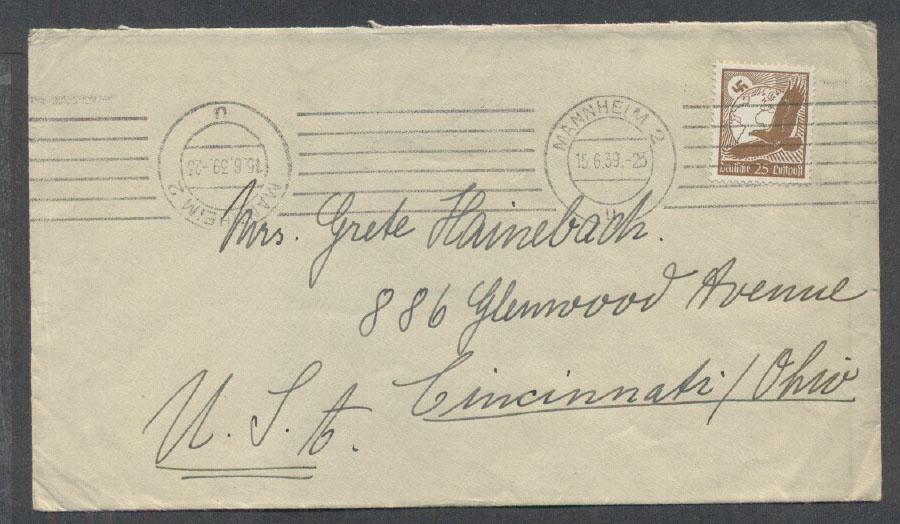 MANNHEIM 2
15.6.39.-23
n
MANNHEIM 2
15.6.39.-23
n
Deutsche 25 Luftpost
Mrs. Grete Hainebach.
886 Glenwood Avenue
Cincinnati / Ohio
U. S. A.